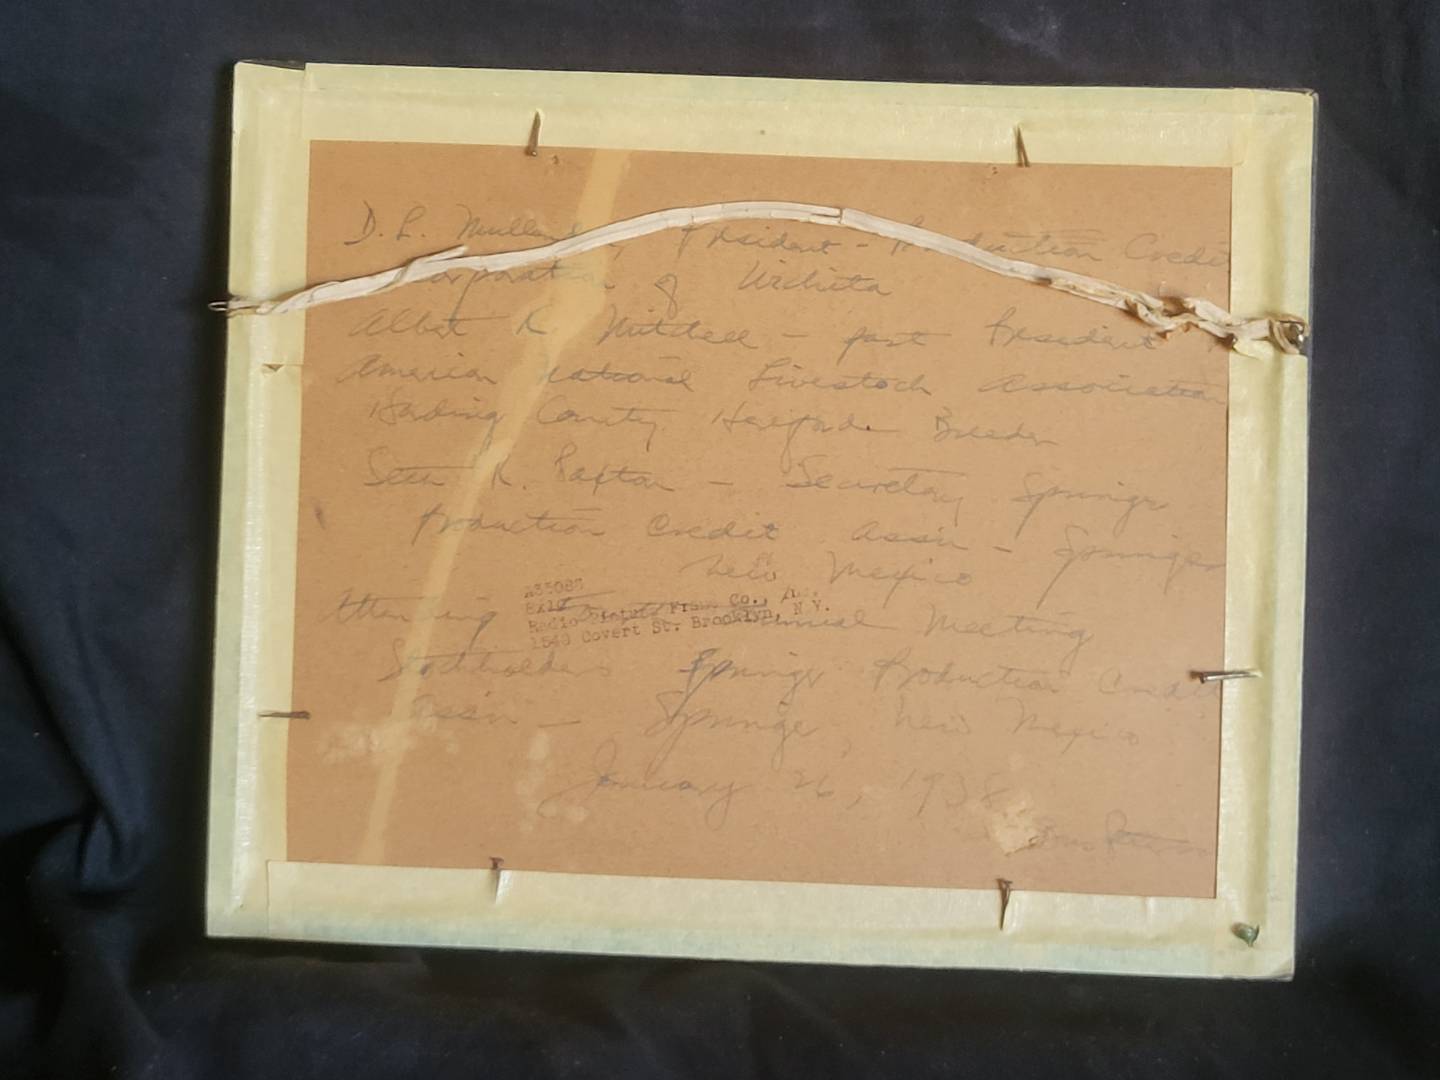 D. L. President - Production Credit
Corporation of Wichita
Albert K. Mitchell - past President
American National Livestock Association
Harding County Hereford Breeder
Seth K. Paxton - Secretary Springer
Production Credit Assn - Springer
New Mexico
Attending Annual Meeting
Stockholders Springer Production Credit
Assn - Springer, New Mexico
January 26, 1938
8x10
Radio Picture Frame Co., Inc.
1540 Covert St. Brooklyn, N.Y.